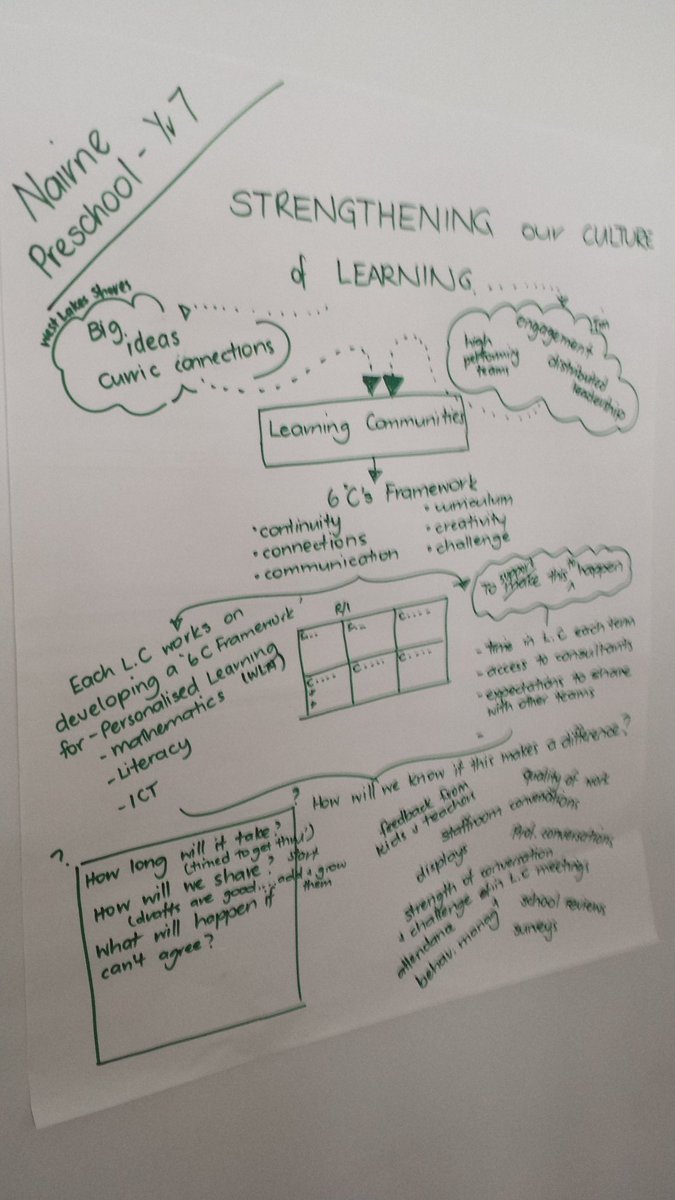 Nairne
Preschool - Yr 7
STRENGTHENING our CULTURE
of LEARNING
West Lakes Shores
Big ideas
curric connections
high performing teams
engagement
distributed leadership
Learning Communities
6 'C's Framework
• continuity
• connections
• communication
• curriculum
• creativity
• challenge
Each L.C works on
developing a '6C Framework'
for - Personalised Learning
- mathematics (WLA)
- Literacy
- ICT
R/1
C...
C...
C....
C....
C....
C....
To support make this happen
- time in L.C each term
- access to consultants
- expectations to share
with other teams
? How will we know if this makes a difference?
feedback from
kids & teachers
Quality of work
staffroom conversations
Prof. conversations
displays
strength of conversation
& challenge in L.C meetings
attendance
behav. manag
school reviews
surveys
?
How long will it take?
(timed to get thru')
How will we share?
(drafts are good... start add & grow them
What will happen if
can't agree?